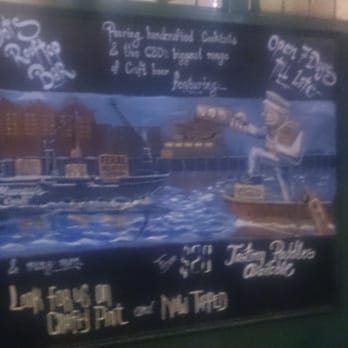 Rooftop
Bar
Pouring handcrafted Cocktails
& the CBD's biggest range
of Craft beer
Featuring...
Open 7 Days
'Til Late
FERAL
& many more
$20
Tasting Paddles
Available
Look for us on
Crafty Pint and Now Tapped